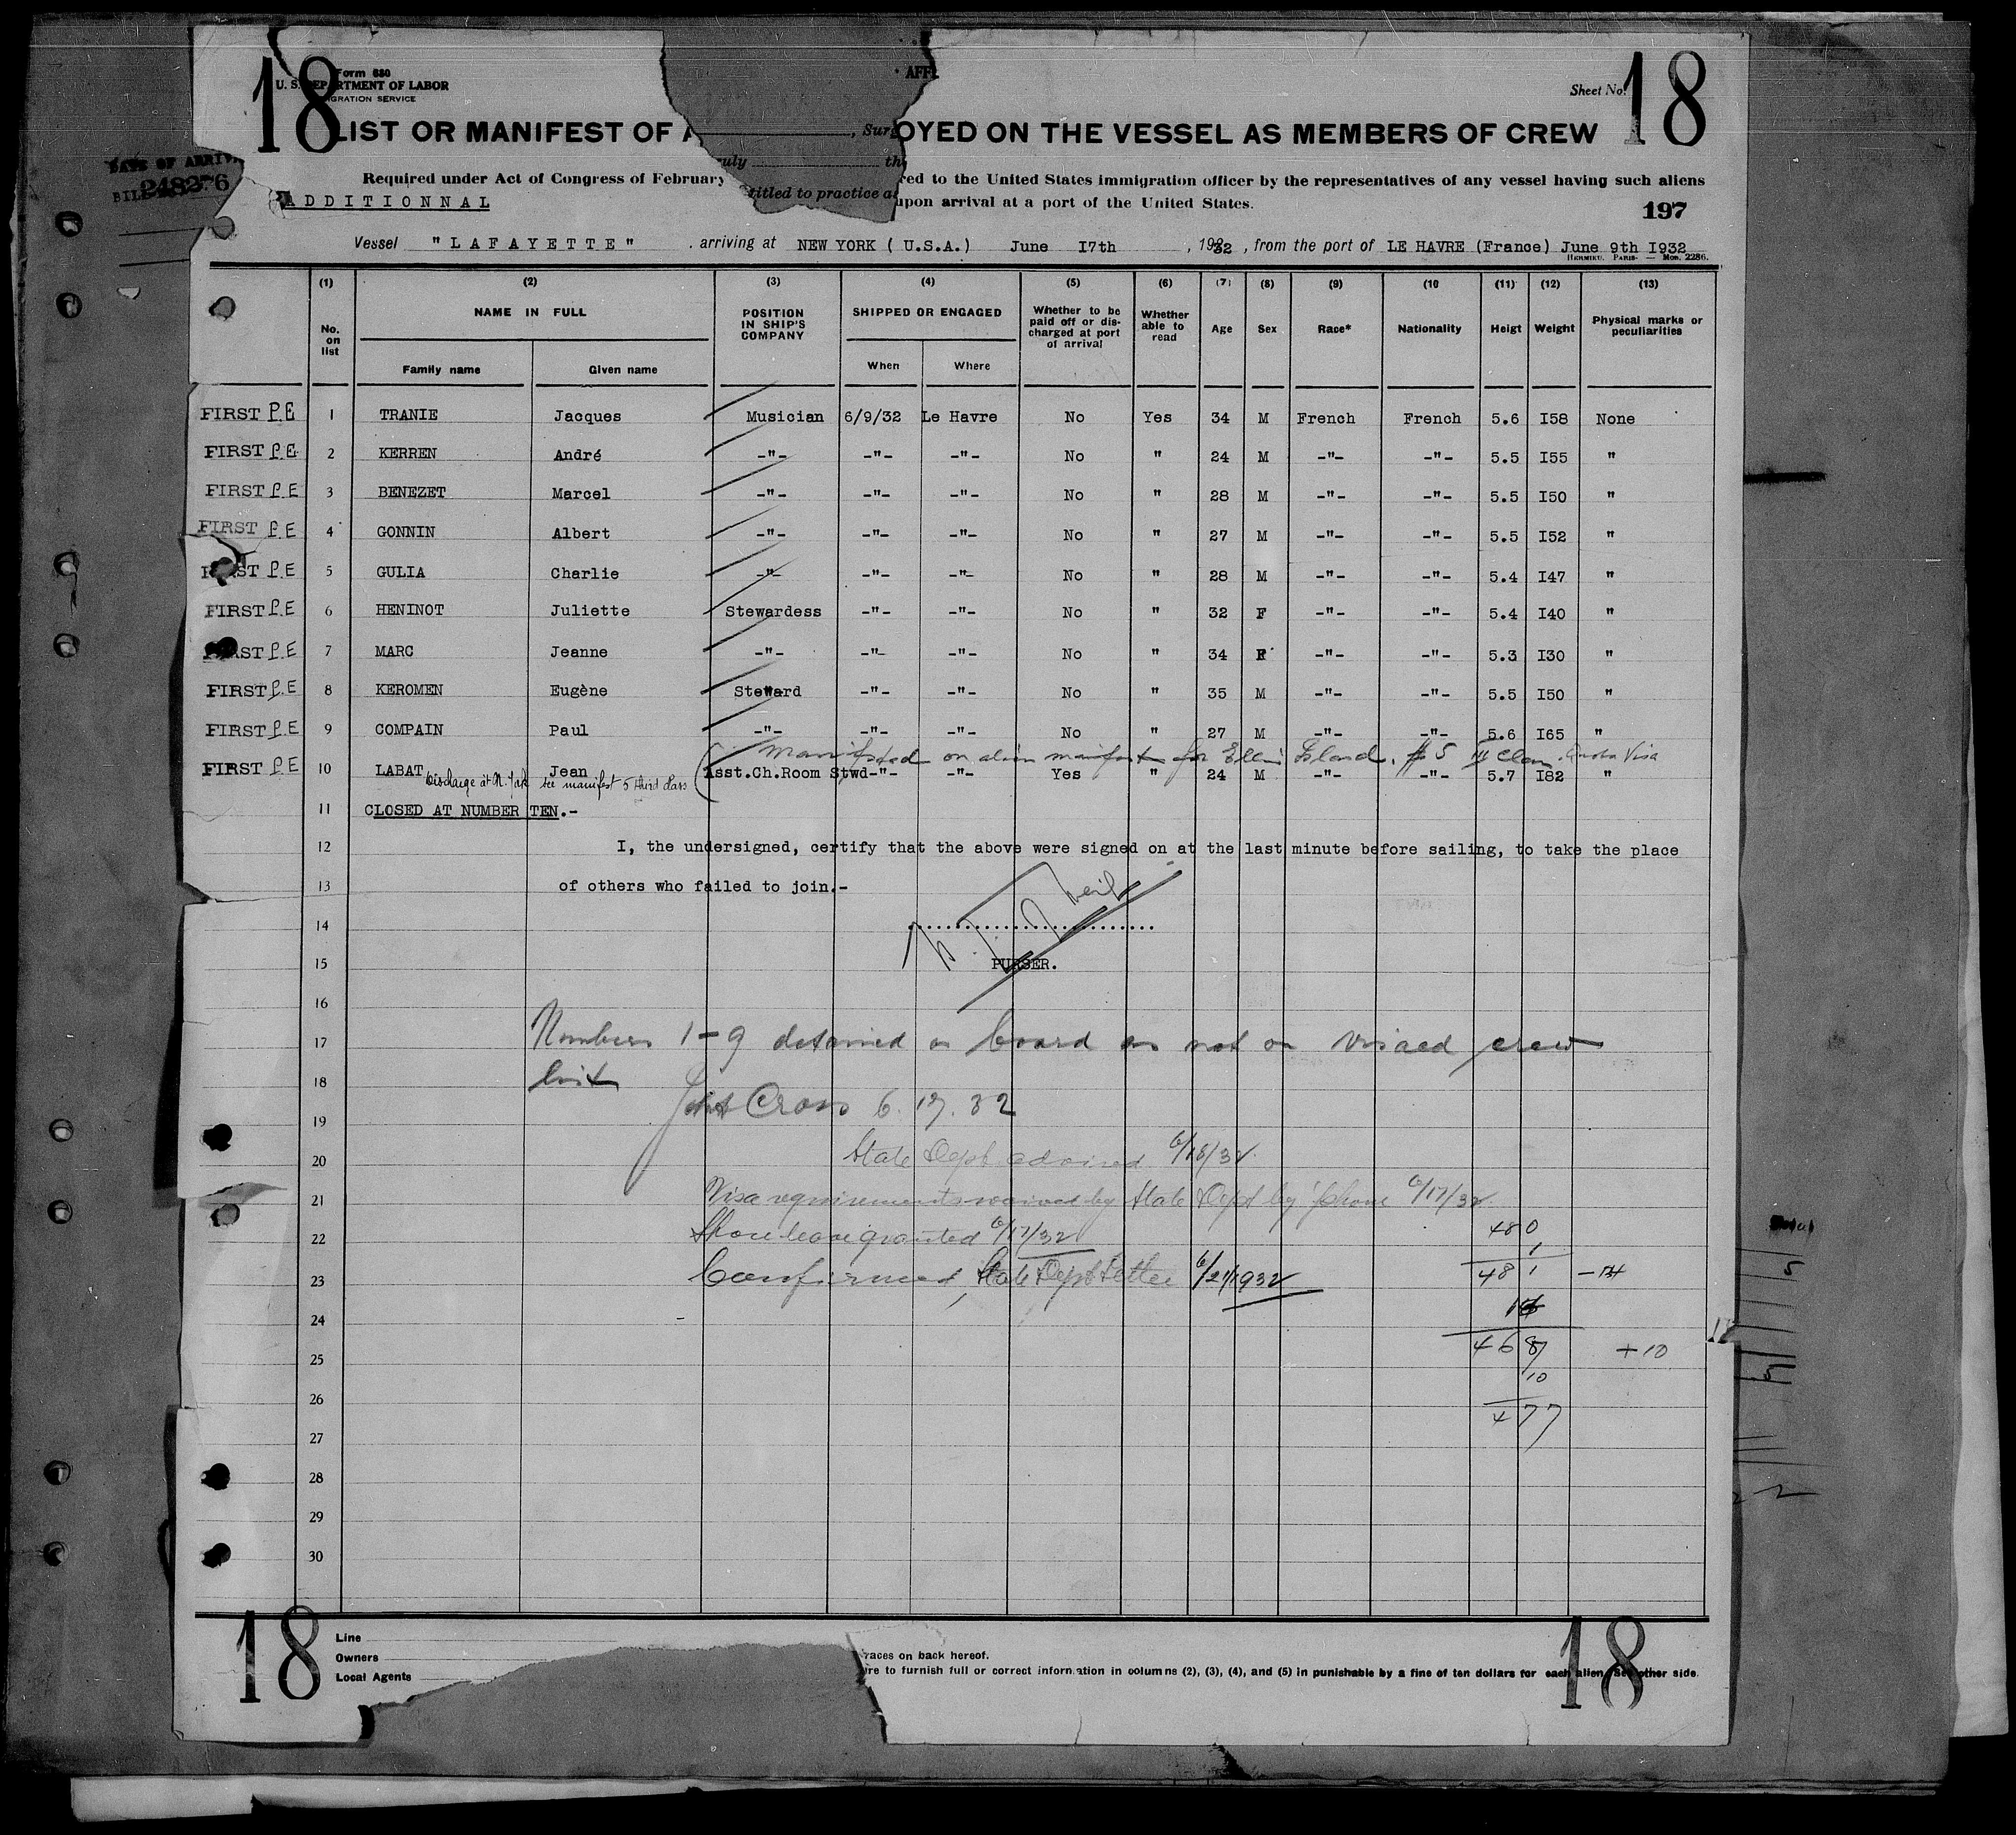 18 18
Form 680
U. S. DEPARTMENT OF LABOR
IGRATION SERVICE
Sheet No.
AFFI
LIST OR MANIFEST OF A , Surg OYED ON THE VESSEL AS MEMBERS OF CREW
DATE OF ARRIV
BILL 248276
ruly th
Required under Act of Congress of February red to the United States immigration officer by the representatives of any vessel having such aliens
titled to practice a
ADDITIONNAL upon arrival at a port of the United States.
197
Vessel "LAFAYETTE" . arriving at NEW YORK ( U.S.A.) June I7th , 1932 , from the port of LE HAVRE (France) June 9th I932
HERMIEU. PARIS- — Mod. 2286.
(1) (2) (3) (4) (5) (6) (7) (8) (9) (10 (11) (12) (13)
No. on list NAME IN FULL POSITION IN SHIP'S COMPANY SHIPPED OR ENGAGED Whether to be paid off or dis- charged at port of arrival Whether able to read Age Sex Race* Nationality Heigt Weight Physical marks or peculiarities
Family name Given name When Where
FIRST P.E 1 TRANIE Jacques Musician 6/9/32 Le Havre No Yes 34 M French French 5.6 I58 None
FIRST P.E 2 KERREN André -"- -"- -"- No " 24 M -"- -"- 5.5 I55 "
FIRST P.E 3 BENEZET Marcel -"- -"- -"- No " 28 M -"- -"- 5.5 I50 "
FIRST P.E 4 GONNIN Albert -"- -"- -"- No " 27 M -"- -"- 5.5 I52 "
FIRST P.E 5 GULIA Charlie -"- -"- -"- No " 28 M -"- -"- 5.4 I47 "
FIRST P.E 6 HENINOT Juliette Stewardess -"- -"- No " 32 F -"- -"- 5.4 I40 "
FIRST P.E 7 MARC Jeanne -"- -"- -"- No " 34 F -"- -"- 5.3 I30 "
FIRST P.E 8 KEROMEN Eugène Steward -"- -"- No " 35 M -"- -"- 5.5 I50 "
FIRST P.E 9 COMPAIN Paul -"- -"- -"- No " 27 M -"- -"- 5.6 I65 "
Manifested on alien manifest for Ellis Island. # 5 III Class. Quota Visa
FIRST P.E 10 LABAT Jean Asst.Ch.Room Stwd-"- -"- Yes " 24 M -"- -"- 5.7 I82 "
Discharge at N. York see manifest 5 third class
11 CLOSED AT NUMBER TEN.-
12 I, the undersigned, certify that the above were signed on at the last minute before sailing, to take the place
13 of others who failed to join.-
14
15 PURSER.
16
17 Numbers 1-9 detained on board as not on visaed crew
18 list
19 Cross 6.17.32
20 State Dept advised 6/18/32
21 Visa requirements waived by State Dept by 'phone 6/17/32
22 Shore leave granted 6/17/32 480
1
23 Confirmed, State Dept Letter 6/21/1932 481
24
25 +10
10
26 477
27
28
29
30
18 18
Line
Owners races on back hereof.
Local Agents re to furnish full or correct information in columns (2), (3), (4), and (5) in punishable by a fine of ten dollars for each alien. See other side.